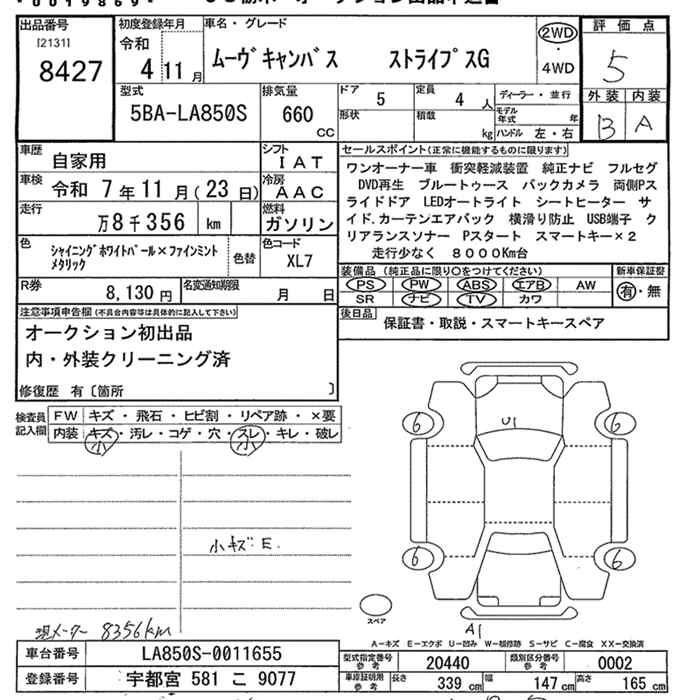 出品番号
[2131]
8427
初度登録年月
令和
4 11 月
車名・グレード
ムーヴキャンバス ストライプスG
2WD
・
4WD
評価点
5
外装 内装
B A
型式
5BA-LA850S
排気量
660
CC
ドア
5
定員
4 人
形状
積載
kg
ディーラー・並行
モデル年式 年
ハンドル 左・右
車歴
自家用
シフト
IAT
車検
令和 7 年 11 月 (23 日)
冷房
AAC
走行
万 8 千 356 km
燃料
ガソリン
色
シャイニングホワイトパール×ファインミント
メタリック
色替
色コード
XL7
R券
8,130 円
名変通知期限
月 日
セールスポイント(正常に機能するものに限ります)
ワンオーナー車 衝突軽減装置 純正ナビ フルセグ
DVD再生 ブルートゥース バックカメラ 両側Pス
ライドドア LEDオートライト シートヒーター サ
イド.カーテンエアバック 横滑り防止 USB端子 ク
リアランスソナー Pスタート スマートキー×2
走行少なく 8000Km台
装備品(純正品に限り○をつけてください)
PS PW ABS エアB AW
SR ナビ TV カワ
新車保証書
有・無
後日品
保証書・取説・スマートキースペア
注意事項申告欄(不具合内容等は具体的に記入して下さい)
オークション初出品
内・外装クリーニング済
修復歴 有〔箇所 〕
検査員
記入欄
FW キズ・飛石・ヒビ割・リペア跡・×要
内装 キズ・汚レ・コゲ・穴・スレ・キレ・破レ
小 小
小キズE.
現メーター 8356km
6 6
U1
6 6
スペア
A1
A−キズ E−エクボ U−凹み W−補修跡 S−サビ C−腐食 XX−交換済
車台番号
LA850S-0011655
登録番号
宇都宮 581 こ 9077
型式指定番号
参考
20440
類別区分番号
参考
0002
車庫証明用
参考
長さ 339 cm
幅 147 cm
高さ 165 cm